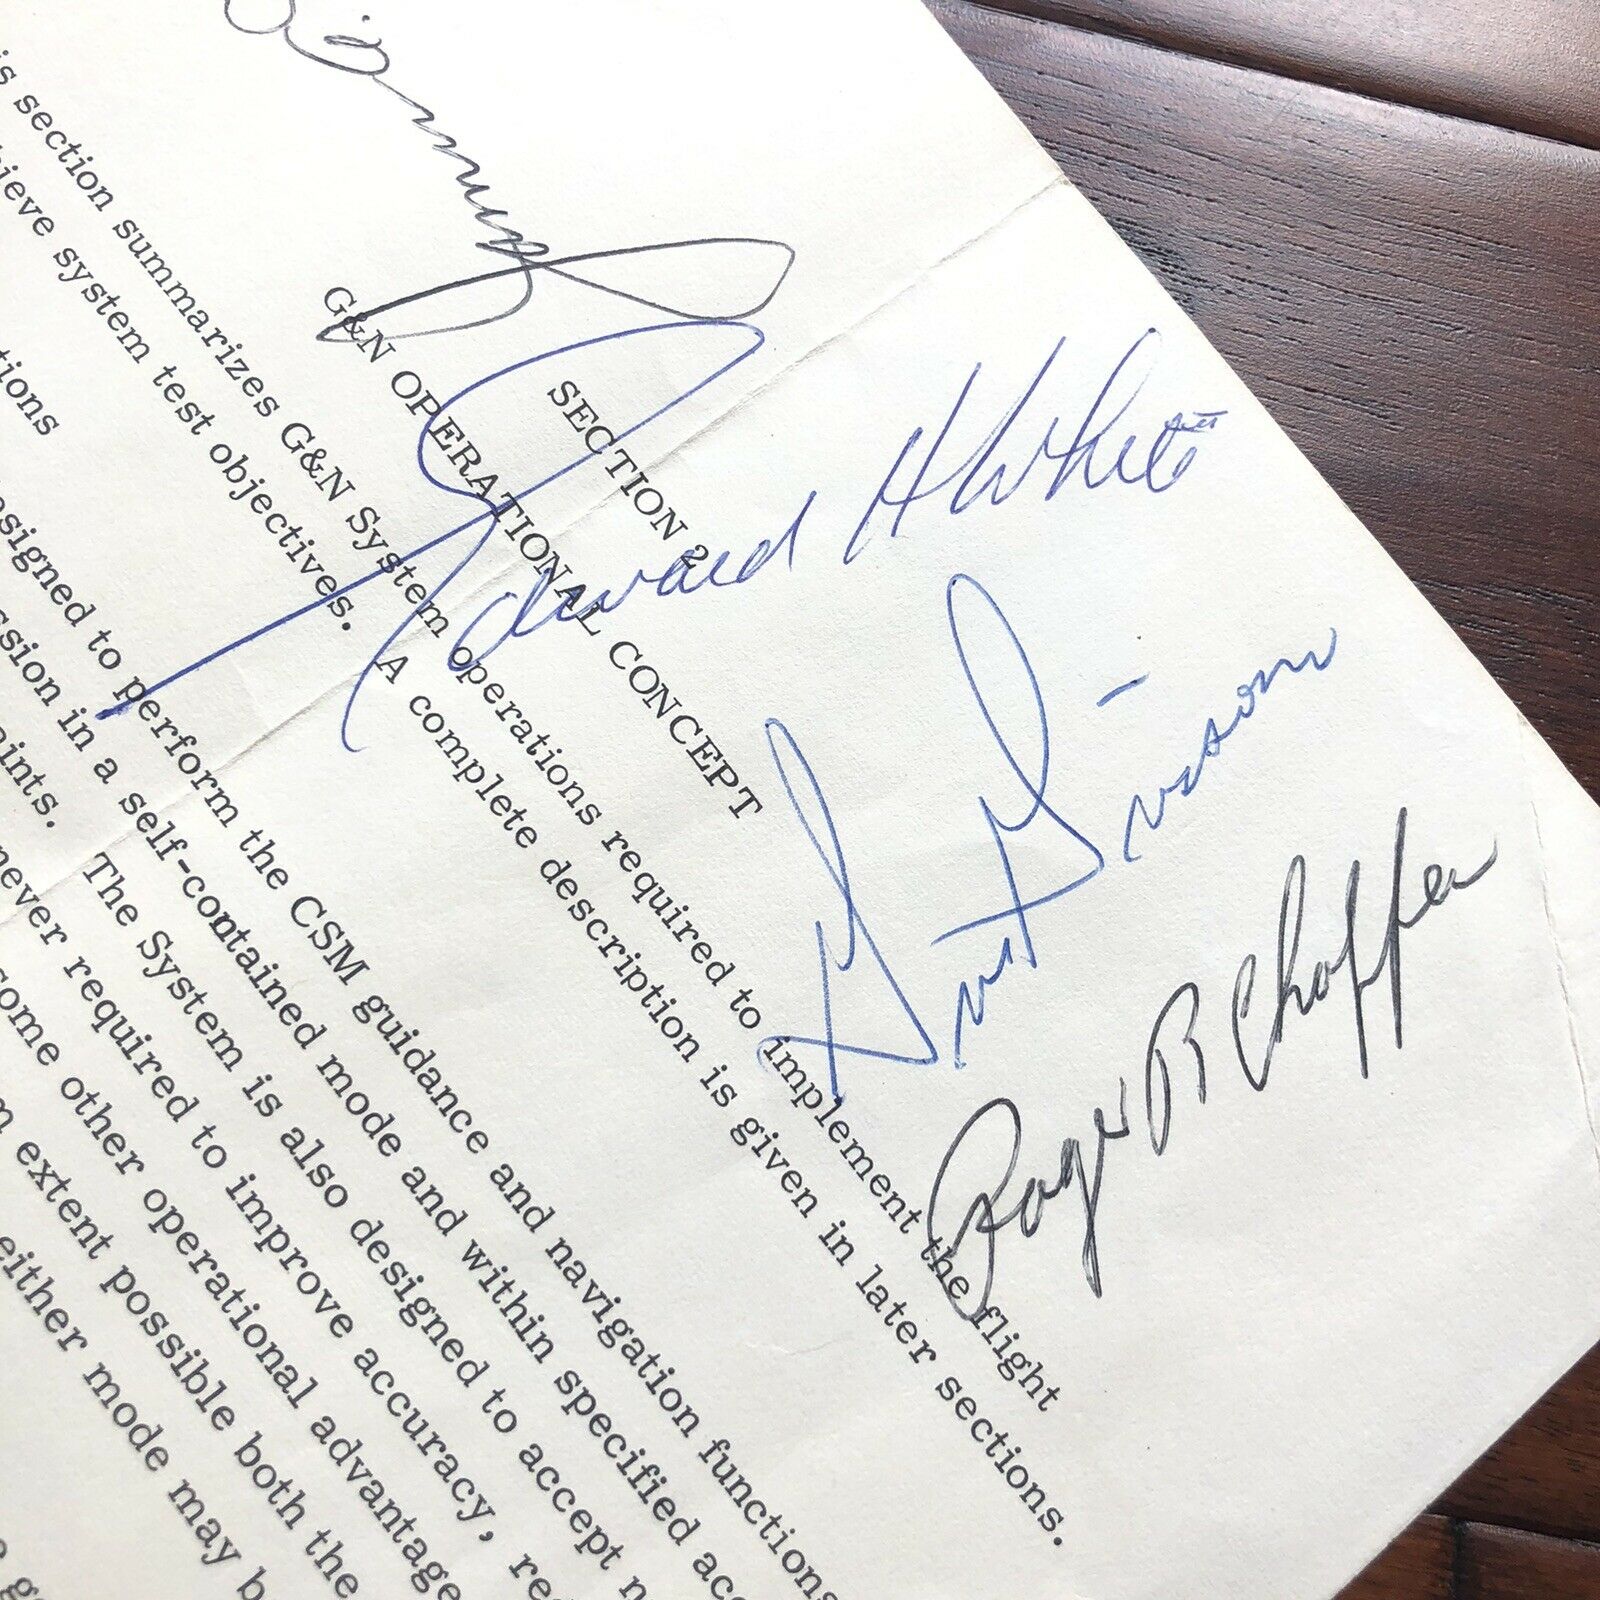 SECTION 2
G&N OPERATIONAL CONCEPT
is section summarizes G&N System operations required to implement the flight
system test objectives. A complete description is given in later sections.
tions
designed to perform the CSM guidance and navigation functions
in a self-contained mode and within specified
The System is also designed to accept
required to improve accuracy,
some other operational advantage
extent possible both the
either mode may
Edward H White II
Gus Grissom
Roger B Chaffee